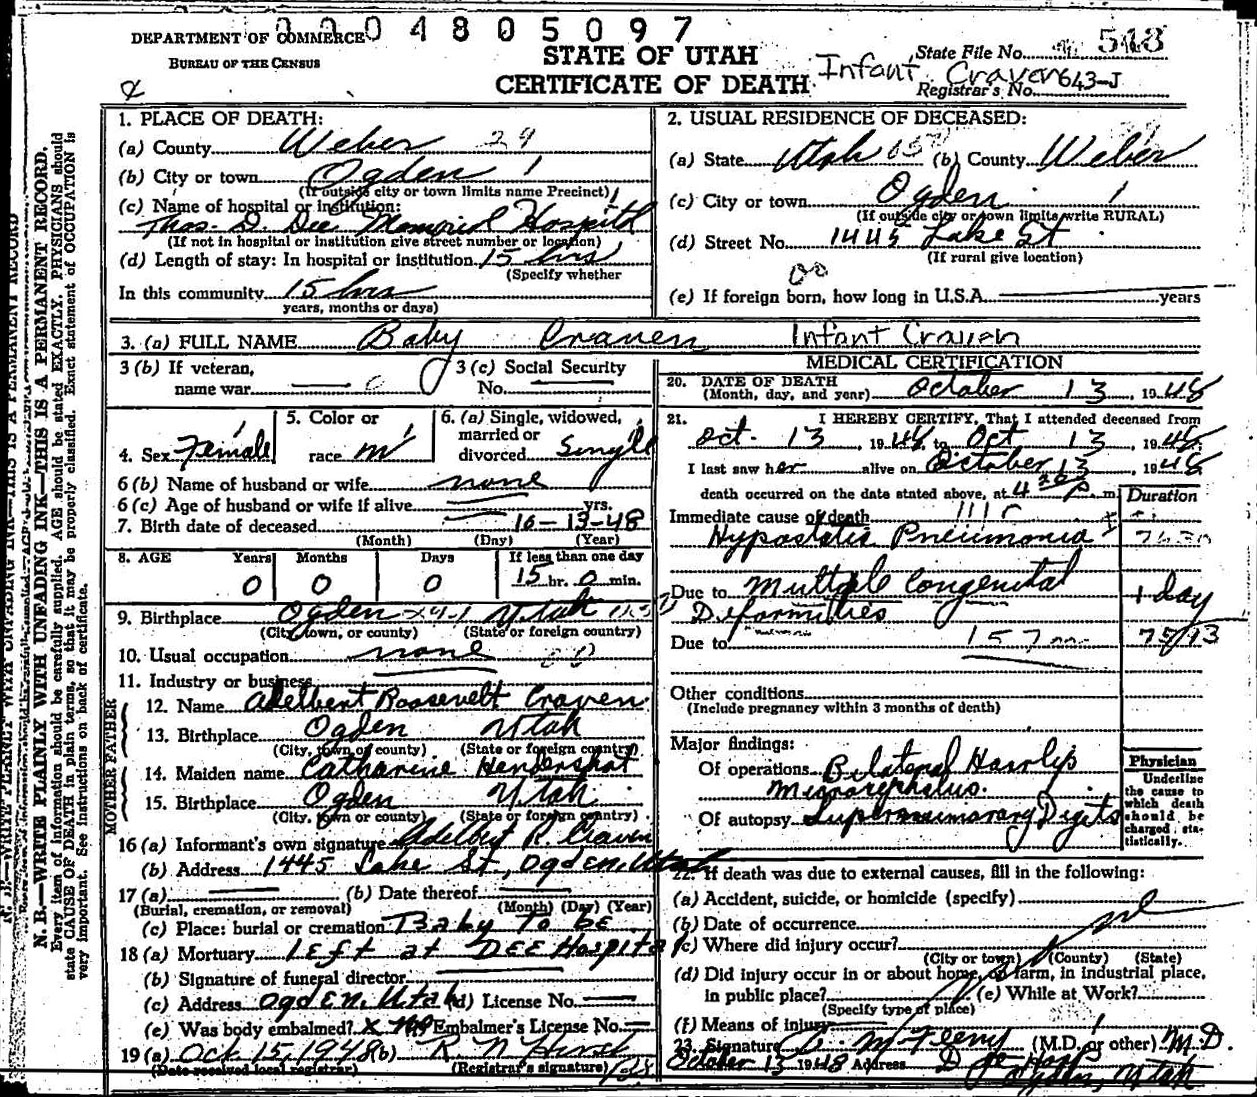 0004805097
DEPARTMENT OF COMMERCE
BUREAU OF THE CENSUS
STATE OF UTAH
CERTIFICATE OF DEATH
Infant Craven
State File No. 513
Registrar's No. 643-J
N. B.—WRITE PLAINLY WITH UNFADING INK—THIS IS A PERMANENT RECORD.
Every item of information should be carefully supplied. AGE should be stated EXACTLY. PHYSICIANS should
state CAUSE OF DEATH in plain terms, so that it may be properly classified. Exact statement of OCCUPATION is
very important. See instructions on back of certificate.
1. PLACE OF DEATH:
(a) County Weber 29
(b) City or town Ogden 1
(If outside city or town limits name Precinct)
(c) Name of hospital or institution:
Thos. D. Dee Memorial Hospital
(If not in hospital or institution give street number or location)
(d) Length of stay: In hospital or institution 15 hrs
(Specify whether
In this community 15 hrs
years, months or days)
2. USUAL RESIDENCE OF DECEASED:
(a) State Utah (b) County Weber
(c) City or town Ogden 1
(If outside city or town limits write RURAL)
(d) Street No. 1445 Lake St.
(If rural give location)
00
(e) If foreign born, how long in U.S.A. years
3. (a) FULL NAME Baby Craven Infant Craven
3 (b) If veteran,
name war
3 (c) Social Security
No.
4. Sex Female
5. Color or
race
6. (a) Single, widowed,
married or
divorced Single
6 (b) Name of husband or wife none
6 (c) Age of husband or wife if alive yrs.
7. Birth date of deceased 10-13-48
(Month) (Day) (Year)
8. AGE Years Months Days If less than one day
0 0 0 15 hr. 0 min.
9. Birthplace Ogden Utah
(City, town, or county) (State or foreign country)
10. Usual occupation none
11. Industry or business
FATHER
12. Name Adelbert Roosevelt Craven
13. Birthplace Ogden Utah
(City, town or county) (State or foreign country)
MOTHER
14. Maiden name Catharine Hendershot
15. Birthplace Ogden Utah
(City, town or county) (State or foreign country)
16 (a) Informant's own signature Adelbert R. Craven
(b) Address 1445 Lake St., Ogden, Utah
17 (a) (b) Date thereof
(Burial, cremation, or removal) (Month) (Day) (Year)
(c) Place: burial or cremation Baby to be
18 (a) Mortuary left at DEE Hospital
(b) Signature of funeral director
(c) Address Ogden, Utah (d) License No.
(e) Was body embalmed? x no Embalmer's License No.
19 (a) Oct 15, 1948 (b) R. N. Hirst
(Date received local registrar) (Registrar's signature)
MEDICAL CERTIFICATION
20. DATE OF DEATH
(Month, day, and year) October 13, 1948
21. I HEREBY CERTIFY, That I attended deceased from
Oct. 13, 1948 to Oct 13, 1948
I last saw her alive on October 13, 1948
death occurred on the date stated above, at 4 20 P m.
Duration
Immediate cause of death
Hypostatic Pneumonia
Due to Multiple Congenital 1 day
Deformities
Due to 157m
Other conditions
(Include pregnancy within 3 months of death)
Major findings:
Of operations Bilateral Harelip
Microcephalus.
Of autopsy Supernumerary Digits
Physician
Underline
the cause to
which death
should be
charged sta-
tistically.
22. If death was due to external causes, fill in the following:
(a) Accident, suicide, or homicide (specify)
(b) Date of occurrence
(c) Where did injury occur?
(City or town) (County) (State)
(d) Did injury occur in or about home, on farm, in industrial place,
in public place? (e) While at Work?
(Specify type of place)
(f) Means of injury
23. Signature (M.D. or other) M.D.
October 13 1948 Address Dee Hosp
Ogden, Utah